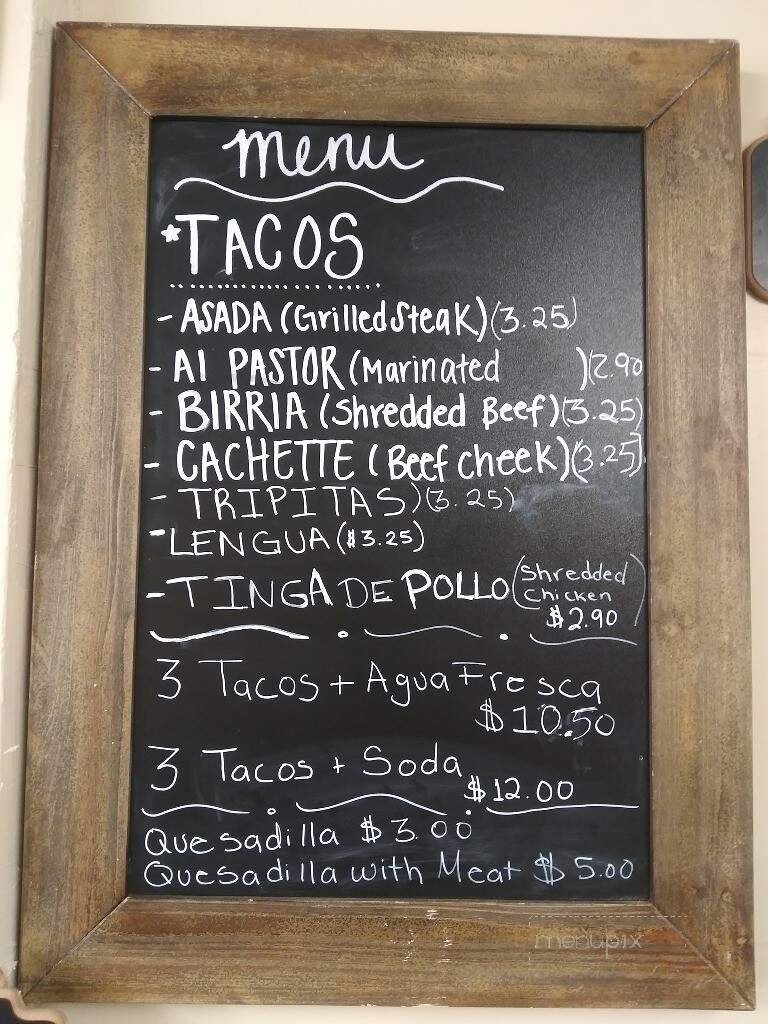 menu
*TACOS
- ASADA (Grilled Steak) (3.25)
- Al PASTOR (Marinated )(2.90
- BIRRIA (Shredded Beef) (3.25)
- CACHETTE (Beef cheek) (3.25)
- TRIPITAS) (3.25)
- LENGUA ($3.25)
- TINGA DE POLLO (Shredded
Chicken
$2.90)
3 Tacos + Agua Fresca
$10.50
3 Tacos + Soda
$12.00
Quesadilla $3.00
Quesadilla with Meat $5.00
menupix